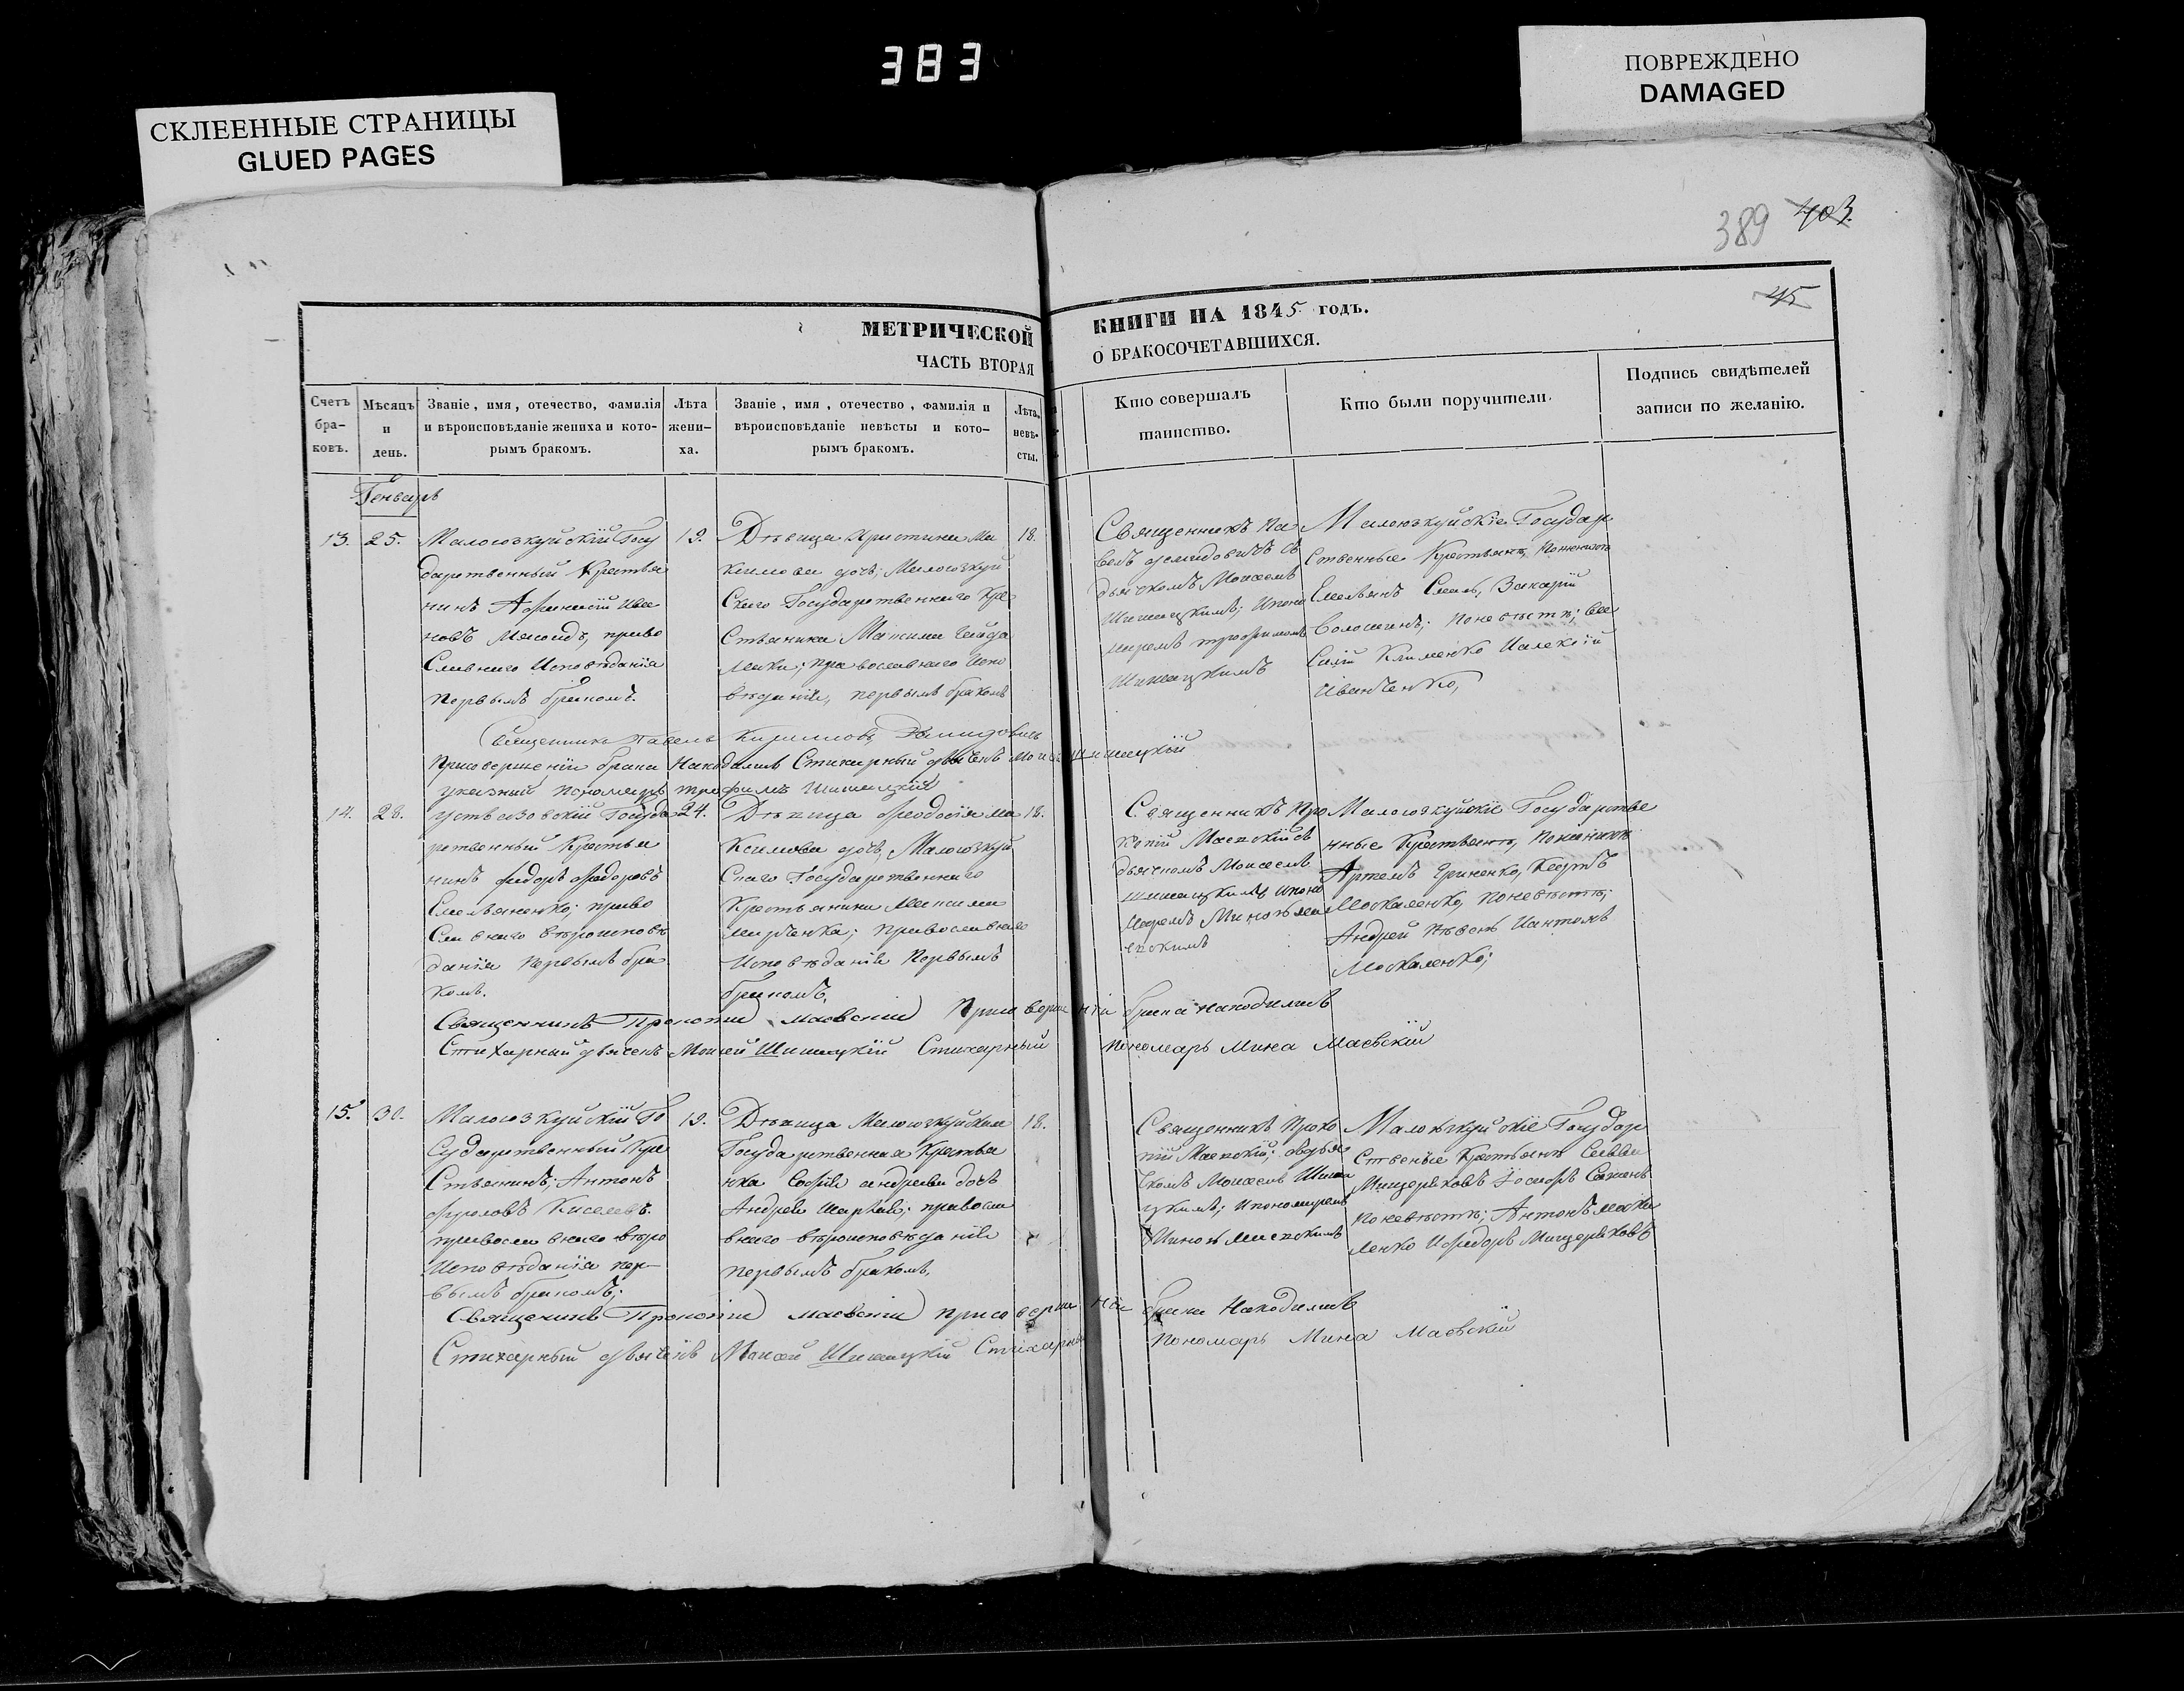 383
СКЛЕЕННЫЕ СТРАНИЦЫ
GLUED PAGES
ПОВРЕЖДЕНО
DAMAGED
389 403.
45
МЕТРИЧЕСКОЙ
ЧАСТЬ ВТОРАЯ
КНИГИ НА 1845 годъ.
О БРАКОСОЧЕТАВШИХСЯ.
Счетъ бра- ковъ.
Мѣсяцъ и день.
Званіе, имя, отечество, фамилія
и вѣроисповѣданіе жениха и кото-
рымъ бракомъ.
Лѣта жени- ха.
Званіе, имя, отечество, фамилія и
вѣроисповѣданіе невѣсты и кото-
рымъ бракомъ.
Лѣта невѣ- сты.
Кто совершалъ
таинство.
Кто были поручители.
Подпись свидѣтелей
записи по желанію.
Генварь
13. 25.
Малоюзкуйскій Госу
дарственный Крестья
нинъ Афанасій Ива
новъ право
славнаго Исповѣданія
первымъ бракомъ.
19.
Дѣвица Христина Ма
ксимова дочь, Малоюзкуй
скаго Государственнаго Кре
стьянина Максима Гайда
православнаго Испо
вѣданія, первымъ бракомъ
18.
Священникъ Па
велъ Демидовичъ съ
дьячкомъ Моисеемъ
Шишацкимъ, и поно
маремъ Трофимомъ
Шишацкимъ
Малоюзкуйскіе Государ
ственные Крестьяне, по женихѣ
Емельянъ Захарій
Волошинъ; по невѣстѣ; Ва
силій Клименко и Алексѣй
Иванченко,
Священникъ Павелъ Кириловъ Демидовичъ
При совершеніи брака находились Стихарный дьячекъ Моисей Шишацкій
указный пономарь Трофимъ Шишацкій
14. 28.
Государственный Крестья
нинъ Федоръ Федоровъ
Емельяненко; право
славнаго вѣроисповѣ
данія первымъ бра
комъ.
24.
Дѣвица Феодосія Ма
ксимова дочь, Малоюзкуй
скаго Государственнаго
Крестьянина Максима
Марченка; православнаго
Исповѣданія первымъ
бракомъ.
18.
Священникъ Про
копій Маевскій съ
дьячкомъ Моисеемъ
Шишацкимъ, и поно
маремъ Миною Ма
евскимъ
Малоюзкуйскіе Государстве
нные Крестьяне, по женихѣ
Артемъ
Москаленко, по невѣстѣ;
Андрей и Антонъ
Москаленко;
Священникъ Прокопій Маевскій При совершеніи брака находились
Стихарный дьячекъ Моисей Шишацкій Стихарный пономарь Мина Маевскій
15. 30.
Малоюзкуйскій Го
сударственный Кре
стьянинъ, Антонъ
Фроловъ Киселевъ.
православнаго вѣро
Исповѣданія пер-
вымъ бракомъ;
19.
Дѣвица Малоюзкуйская
Государственная Крестья
нка Софія Андреева дочь
Андрея православ
наго вѣроисповѣданія
первымъ бракомъ,
18.
Священникъ Проко
пій Маевскій; съ дья
чкомъ Моисеемъ Шиша
цкимъ; и пономаремъ
Миною Маевскимъ
Малоюзкуйскіе Государ
ственные Крестьяне Савва
Мищеряковъ Іосифъ
по невѣстѣ; Антонъ Моска
ленко и Федоръ Мищеряковъ
Священникъ Прокопій Маевскій при совершеніи брака Находились
Стихарный дьячекъ Моисей Шишацкій Стихарный пономарь Мина Маевскій